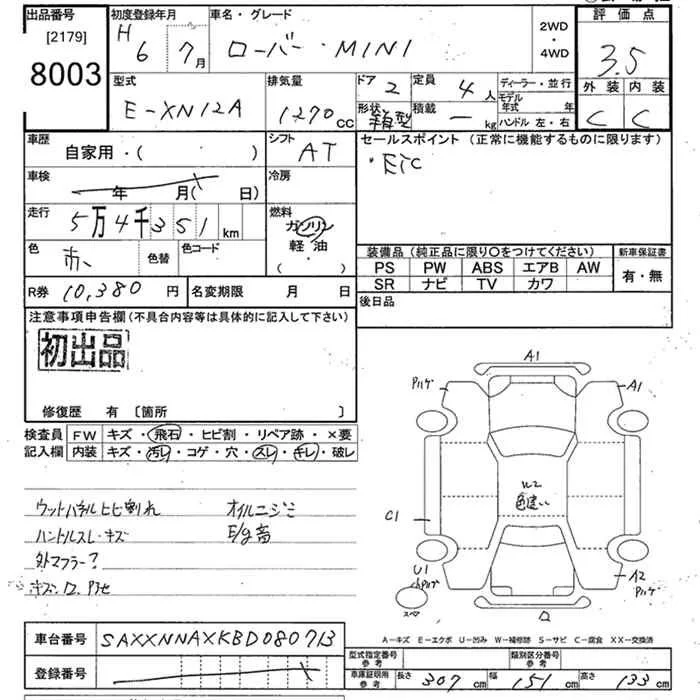 出品番号
[2179]
8003
初度登録年月
H 6年 7月
車名・グレード
ローバー・MINI
2WD
・
4WD
評価点
3.5
外装 内装
C C
型式
E-XN12A
排気量
1270 cc
ドア
2
定員
4人
形状
箱型
積載
― kg
ディーラー・並行
モデル年式 年
ハンドル 左・右
車歴
自家用・( )
シフト
AT
セールスポイント (正常に機能するものに限ります)
・ETC
車検
年 月( 日)
冷房
走行
5万4千351km
燃料
ガソリン
軽油
( ・ )
色
赤
色替
色コード
装備品(純正品に限り〇をつけてください)
新車保証書
PS PW ABS エアB AW
SR ナビ TV カワ
有・無
R券 10,380円
名変期限 月 日
後日品
注意事項申告欄(不具合内容等は具体的に記入して下さい)
初出品
修復歴 有 〔箇所 〕
検査員記入欄
FW キズ・飛石・ヒビ割・リペア跡・×要
内装 キズ・汚レ・コゲ・穴・スレ・キレ・破レ
ウッドパネルヒビ割れ オイルニジミ
ハンドルスレ・キズ E/g音
外マフラー?
A1
A1
W2
色違い
C1
U1
A2
スペア
A-キズ E-エクボ U-凹み W-補修跡 S-サビ C-腐食 XX-交換済
車台番号
SAXXNNAXKBD080713
登録番号
型式指定番号
参考
類別区分番号
参考
車庫証明用
参考
長さ 307cm 幅 151cm 高さ 133cm